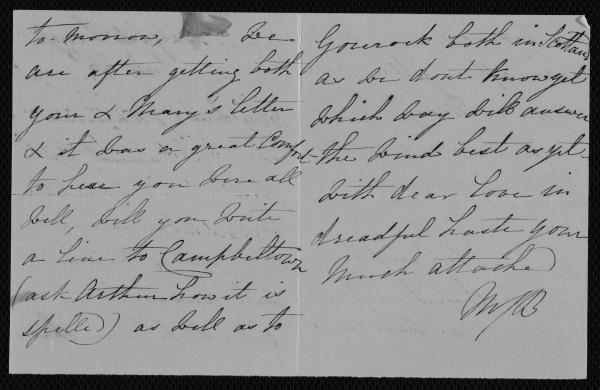 to-morrow, We
are after getting both
your & Mary's letter
& it was a great Comfort
to hear you were all
Well, Will you Write
a line to Campbeltown
(ask Arthur how it is
spelled) as well as to
Gourock both in Scotland
as we dont know yet
which way will answer
the Wind best as yet-
With dear love in
dreadful haste your
Much attached